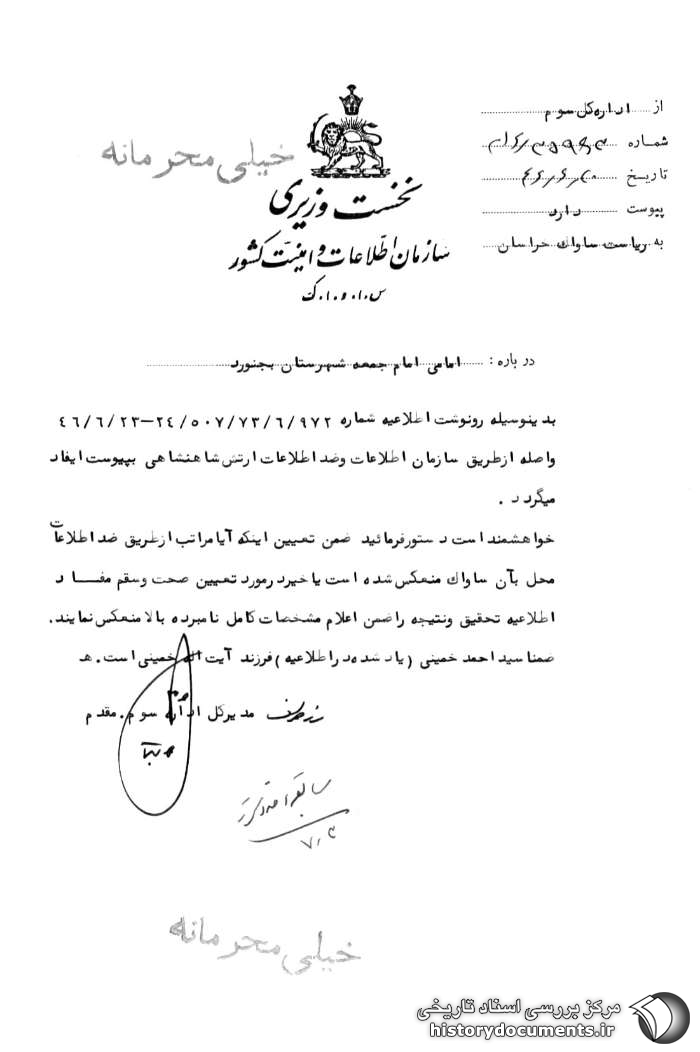 خیلی محرمانه
نخست وزیری
سازمان اطلاعات و امنیت کشور
س.ا.و.ا.ک
از اداره کل سوم
شماره
تاریخ
پیوست دارد
به ریاست ساواک خراسان
درباره : امامی امام جمعه شهرستان بجنورد
بدینوسیله رونوشت اطلاعیه شماره ۹۷۲/۶/۷۳/۵۰۷/۲۴-۴۶/۶/۲۳
واصله ازطریق سازمان اطلاعات وضد اطلاعات ارتش شاهنشاهی بپیوست ایفاد
میگردد .
خواهشمند است دستورفرمائید ضمن تعیین اینکه آیا مراتب ازطریق ضد اطلاعات
محل بآن ساواک منعکس شده است یا خیر درمورد تعیین صحت وسقم مفاد
اطلاعیه تحقیق ونتیجه را ضمن اعلام مشخصات کامل نامبرده بالا منعکس نمایند.
ضمنا سید احمد خمینی (یاد شده در اطلاعیه) فرزند آیت اله خمینی است. هـ
مدیرکل اداره سوم. مقدم
خیلی محرمانه
مرکز بررسی اسناد تاریخی
historydocuments.ir